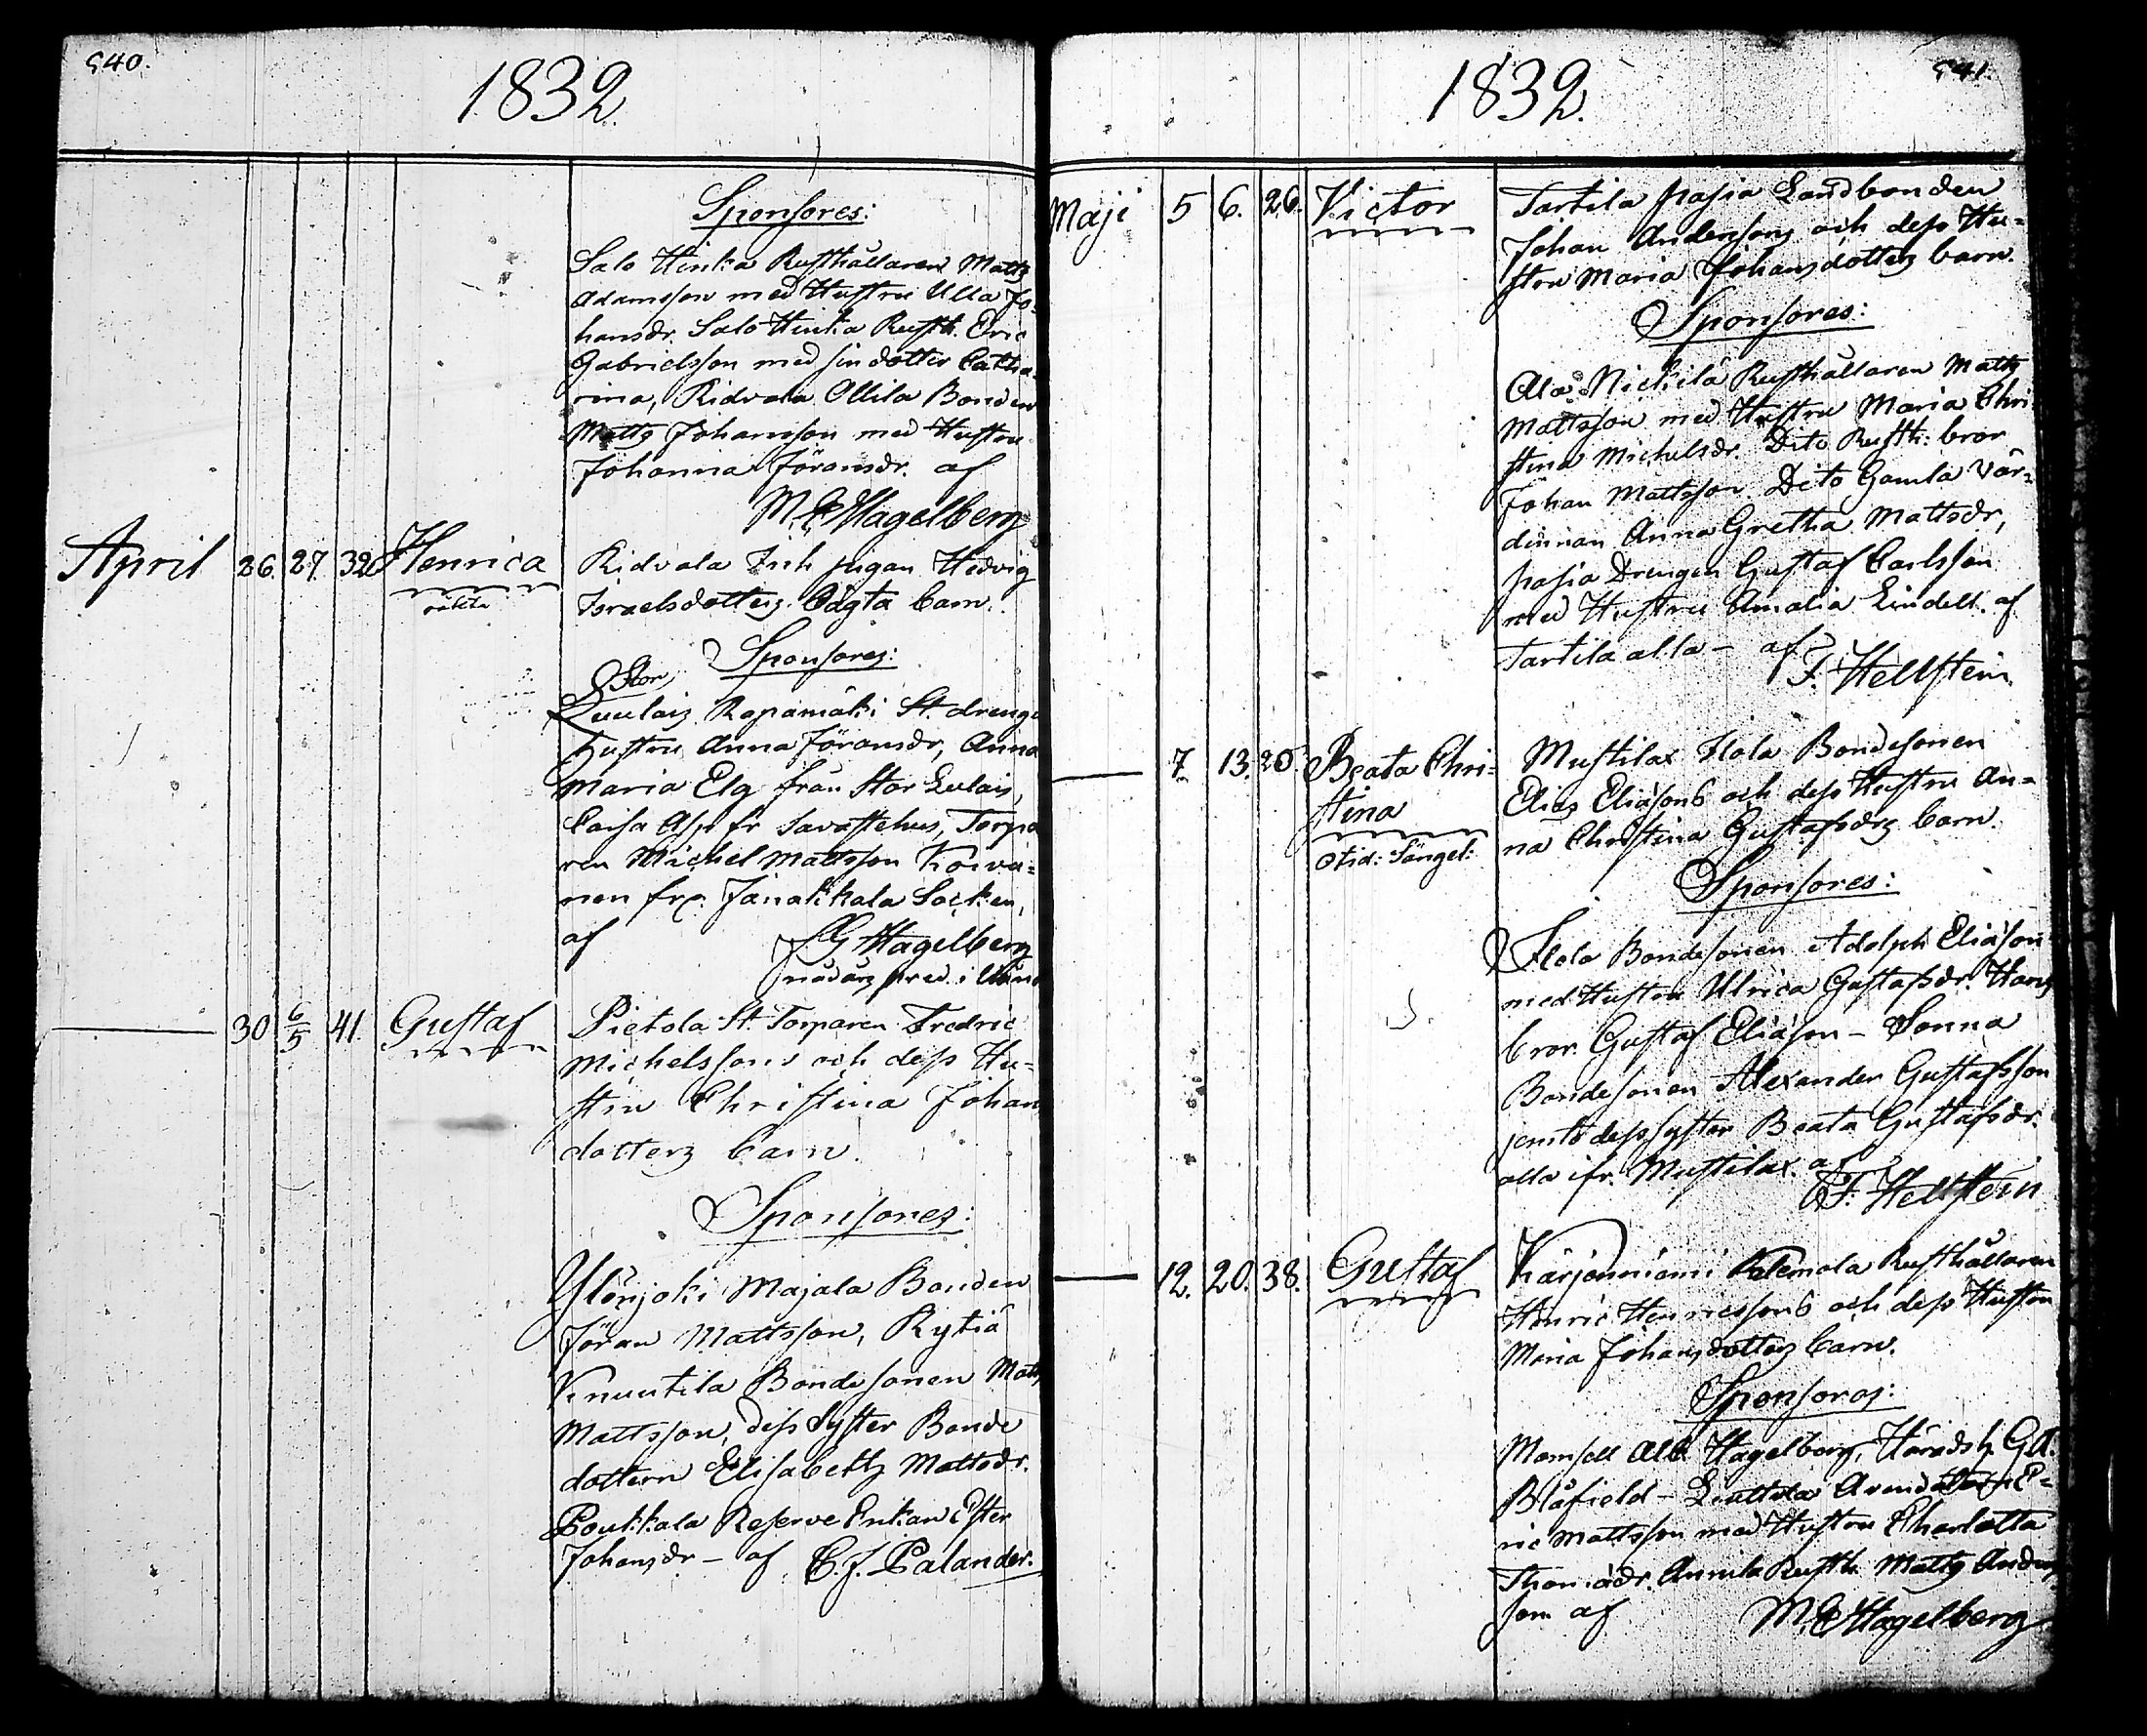 540.
1832.
Sponsores:
Salo Hinka Rusthållaren Matts
Adamsson med Hustru Ulla Jo-
hansdr. Salo Hinka Rusth. Eric
Gabrielsson med sin dotter Catha-
rina, Ridvala Ollila Bonden
Matts Johansson med Hustru
Johanna Jöransdr. af
M. E. Hagelberg
April 26. 27. 32. Henrica
oäkta
Ridvala pigan Hedvig
Israelsdotters oägta barn.
Sponsores:
Stor
Luulais Rapamäki St. drengs
hustru Anna Jöransdr, Anna
Maria Elg från Stor Lulais,
Caisa Asp fr Tavastehus, Torpa
ren Michel Mattsson Koiva-
nen frn Janakkala Socken,
af
G Hagelberg
nådårs pred. i
30 6/5 41. Gustaf
Pietola St. Torparen Fredric
Michelssons och dess Hu-
stru Christina Johans
dotters barn.
Sponsores:
Ylönjoki Majala Bonden
Jöran Mattsson, Rytiä
Knuutila Bondesonen Matts
Mattsson, dess Syster Bonde
dottern Elisabeth Mattsdr.
Poukkala Reserve Enkan Ester
Johansdr – af C. J. Palander.
541.
1832.
Maji 5 6. 26. Victor
Tartila Pasia Landbonden
Johan Anderssons och dess Hu-
stru Maria Johansdotters barn.
Sponsores:
Ala Nickilä Rusthållaren Matts
Mattsson med Hustru Maria Chri
stina Michelsdr. Dito Rusth: bror
Johan Mattsson Dito Gamla Vär-
dinnan Anna Gretha Mattsdr,
Pasia Drengen Gustaf Carlsson
med Hustru Amalia Lindell. af
Tartila alla – af
F. Hellstein.
7. 13. 26. Beata Chri-
stina
Otid: Sängel:
Mustilax Flola Bondesonen
Elias Eliäsons och dess Hustru An-
na Christina Gustafsdrs barn.
Sponsores:
Flola Bondesonen Adolph Eliäson
med Hustru Ulrica Gustafsdr. Hans
bror Gustaf Eliäson – Sonna
Bondesonen Alexander Gustafsson
jemte dess syster Beata Gustafsdr.
alla ifr. Mustilax. af
F. Hellstein
12. 20. 38. Gustaf
Kärjenniemi Rusthållaren
Henric Henricssons och dess Hustru
Maria Johansdotters barn.
Sponsores:
Mamsell Alb. Hagelberg, Häradsh. G A
Blåfield – Arendatorn E-
ric Mattsson med Hustru Charlotta
Thomädr. Annila Rusth. Matts Anders
son af M. E. Hagelberg